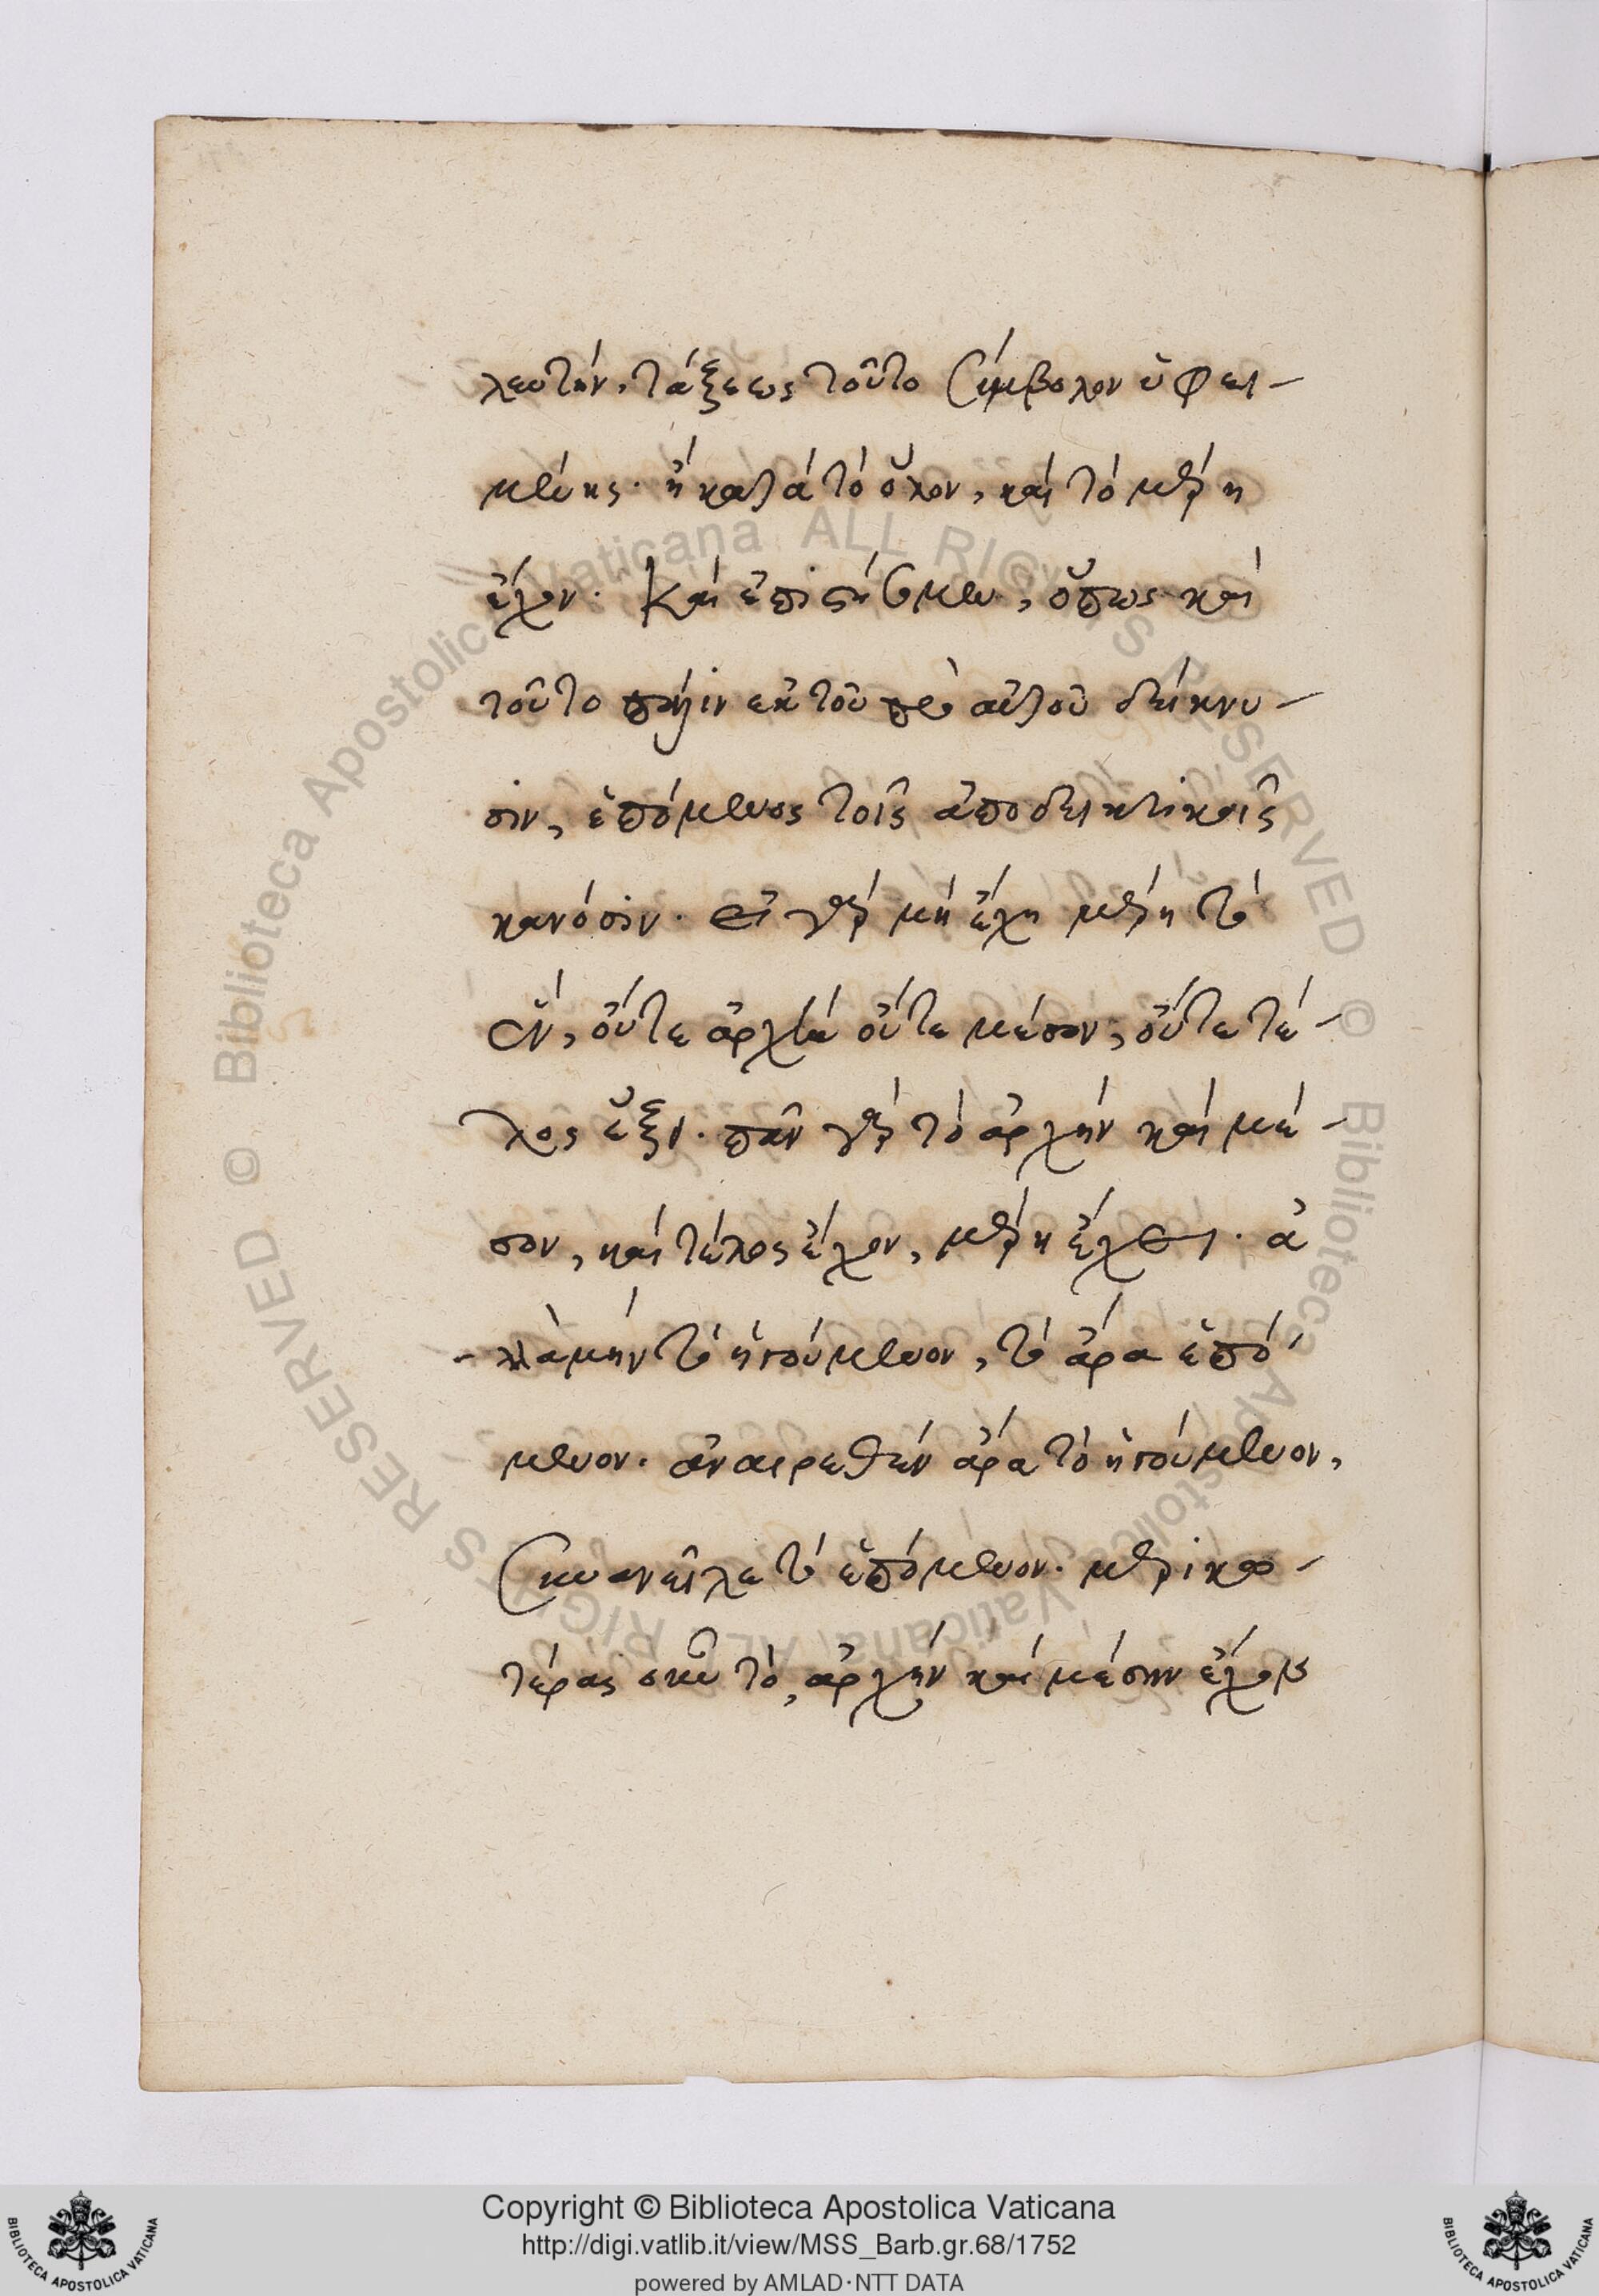 λευτήν, τάξεως τοῦτο σύμβολον ὑφει-
μένης. ἢ κατὰ τὸ ὅλον, καὶ τὸ μέρη
ἔχον. Καὶ ἐπιστήσωμεν, ὅπως καὶ
τοῦτο πάλιν ἐκ τοῦ πρὸ αὐτοῦ δείκνυ-
σιν, ἑπόμενος τοῖς ἀποδεικτικοῖς
κανόσιν. εἰ γὰρ μὴ ἔχη μέρη τὸ
ἓν, οὔτε ἀρχὴν οὔτε μέσον, οὔτε τέ-
λος ἕξει. πᾶν γὰρ τὸ ἀρχὴν καὶ μέ-
σον, καὶ τέλος ἔχον, μέρη ἔχει. ἀ
λλὰ μὴν τὸ ἡγούμενον, τὸ ἄρα ἑπό-
μενον. ἀναιρεθὲν ἄρα τὸ ἡγούμενον,
συνανεῖλε τὸ ἑπόμενον. μερικω-
τέρας οὖν τὸ, ἀρχὴν καὶ μέσην ἐχού
Copyright © Biblioteca Apostolica Vaticana
http://digi.vatlib.it/view/MSS_Barb.gr.68/1752
powered by AMLAD·NTT DATA
BIBLIOTECA APOSTOLICA VATICANA
BIBLIOTECA APOSTOLICA VATICANA
© Biblioteca Apostolica Vaticana ALL RIGHTS RESERVED © Biblioteca Apostolica Vaticana ALL RIGHTS RESERVED